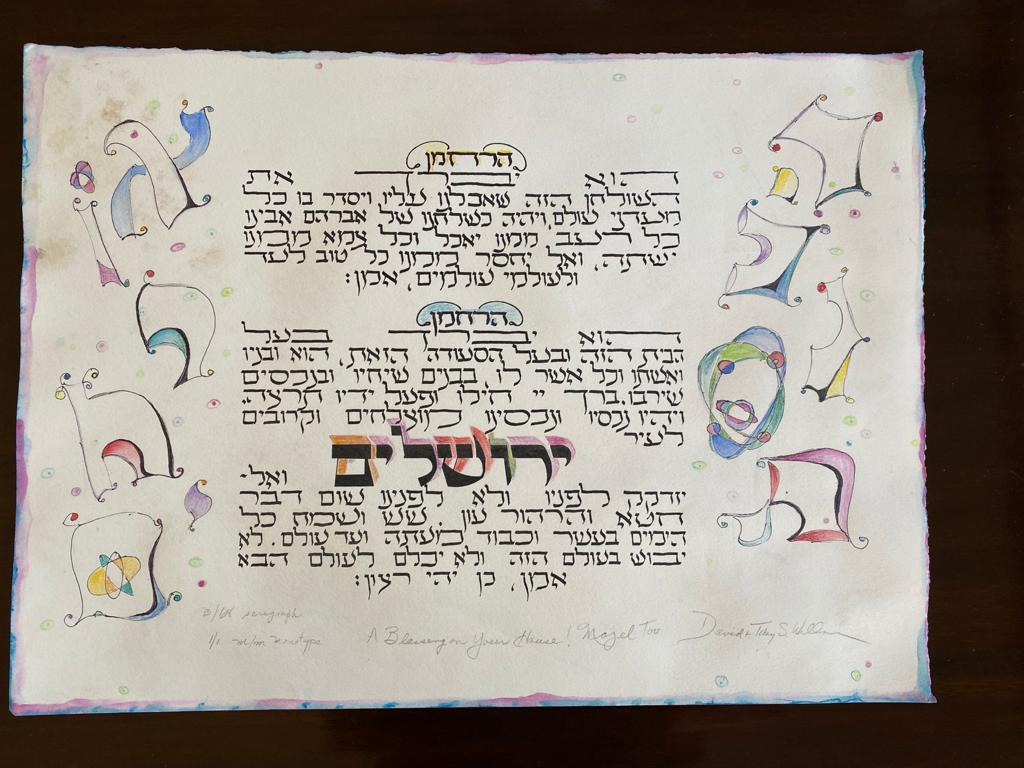 הרחמן
הוא יברך את
השולחן הזה שאכלנו עליו, ויסדר בו כל
מעדני עולם, ויהיה כשלחנו של אברהם אבינו
כל רעב ממנו יאכל וכל צמא ממנו
ישתה, ואל יחסר ממנו כל טוב לעד
ולעולמי עולמים, אמן:
הרחמן
הוא יברך בעל
הבית הזה ובעל הסעודה הזאת, הוא ובניו
ואשתו וכל אשר לו, בבנים שיחיו ובנכסים
שירבו. ברך יי חילו ופעל ידיו תרצה,
ויהיו נכסיו ונכסינו מוצלחים וקרובים
לעיר
ירושלים
ואל-
יזדקק לפניו ולא לפנינו שום דבר
חטא והרהור עון, שש ושמח כל
הימים בעשר וכבוד מעתה ועד עולם. לא
יבוש בעולם הזה ולא יכלם לעולם הבא
אמן, כן יהי רצון:
serigraph
1/1 m/m monotype A Blessing on Your House! Mazel Tov David &